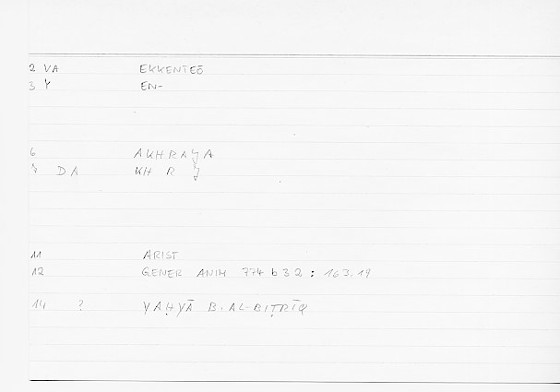 2 VA EKKENTEŌ
3 Y EN-
6 AKHRAǦA
DA KH R Ǧ
11 ARIST
12 GENER ANIM 774 b 32 : 163.19
14 ? YAḤYĀ B. AL-BIṬRĪQ